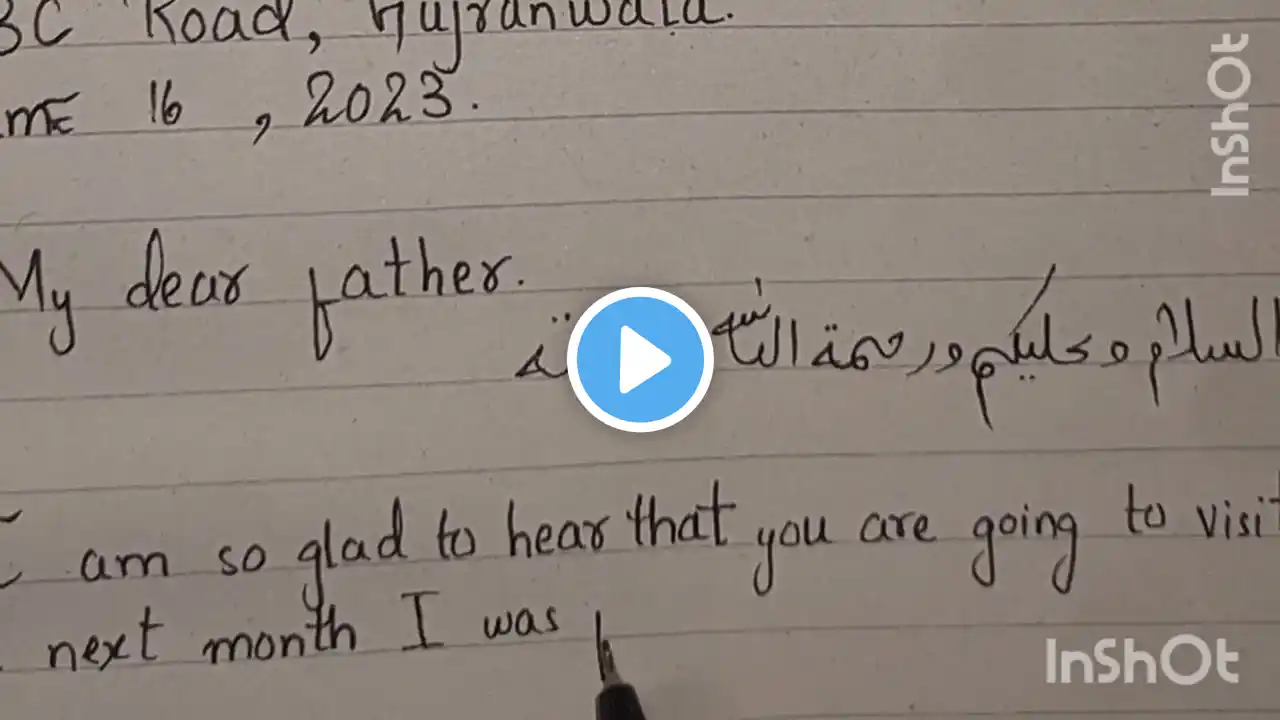 BC Road, Gujranwala.
16, 2023.
My dear father.
السلام وعليكم ورحمة اللہ
I am so glad to hear that you are going to visit
next month I was
InShOt
InShOt